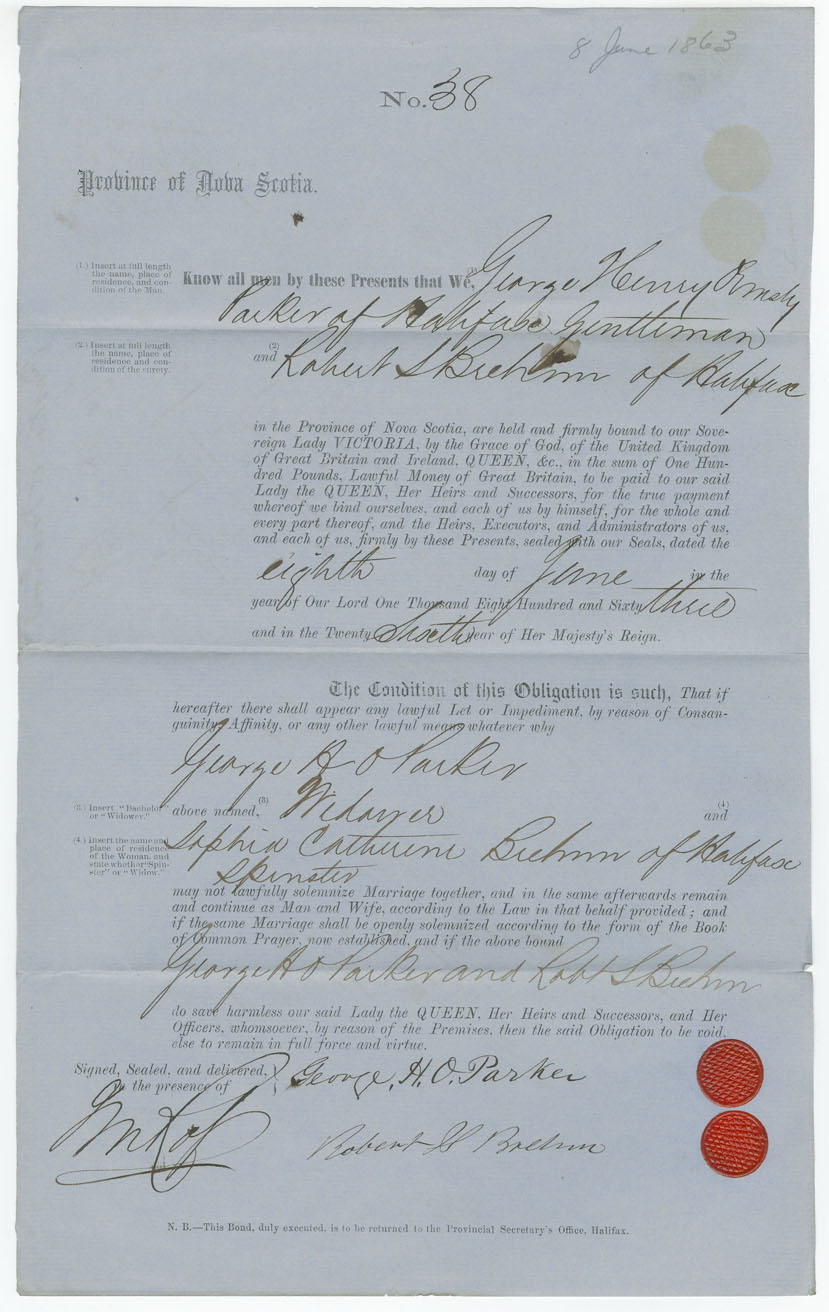 8 June 1863
No. 38
Province of Nova Scotia.
(1.) Insert at full length
the name, place of
residence, and con-
dition of the Man.
Know all men by these Presents that We, (1) George Henry Ormsby
Parker of Halifax Gentleman
(2.) Insert at full length
the name, place of
residence and con-
dition of the surety.
(2)
and Robert S Brehm of Halifax
in the Province of Nova Scotia, are held and firmly bound to our Sove-
reign Lady VICTORIA, by the Grace of God, of the United Kingdom
of Great Britain and Ireland, QUEEN, &c., in the sum of One Hun-
dred Pounds, Lawful Money of Great Britain, to be paid to our said
Lady the QUEEN, Her Heirs and Successors, for the true payment
whereof we bind ourselves, and each of us by himself, for the whole and
every part thereof, and the Heirs, Executors, and Administrators of us,
and each of us, firmly by these Presents, sealed with our Seals, dated the
eighth day of June in the
year of Our Lord One Thousand Eight Hundred and Sixty three
and in the Twenty Sixth year of Her Majesty's Reign.
The Condition of this Obligation is such, That if
hereafter there shall appear any lawful Let or Impediment, by reason of Consan-
guinity, Affinity, or any other lawful means whatever why
George H O Parker
(3.) Insert "Bachelor"
or "Widower."
above named, (3) Widower (4) and
(4.) Insert the name and
place of residence
of the Woman, and
state whether "Spin-
ster" or "Widow."
Sophia Catherine Brehm of Halifax
Spinster
may not lawfully solemnize Marriage together, and in the same afterwards remain
and continue as Man and Wife, according to the Law in that behalf provided; and
if the same Marriage shall be openly solemnized according to the form of the Book
of Common Prayer, now established, and if the above bound
George H O Parker and Robt S Brehm
do save harmless our said Lady the QUEEN, Her Heirs and Successors, and Her
Officers, whomsoever, by reason of the Premises, then the said Obligation to be void,
else to remain in full force and virtue.
Signed, Sealed, and delivered,
in the presence of
George, H. O. Parker
Robert S Brehm
N. B.—This Bond, duly executed, is to be returned to the Provincial Secretary's Office, Halifax.